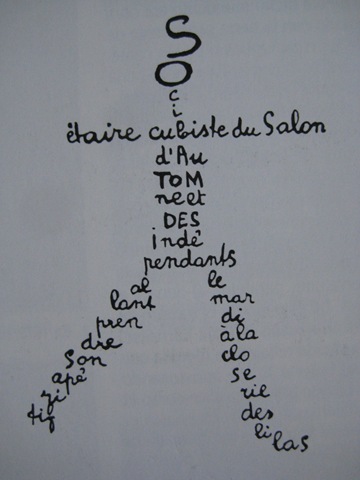 S
O
c
i
étaire cubiste du Salon
d'Au
TOM
ne et
DES
indé
pendants
al
lant
pren
dre
son
apé
ri
tif
le
mar
di
à la
clo
se
rie
des
li
las